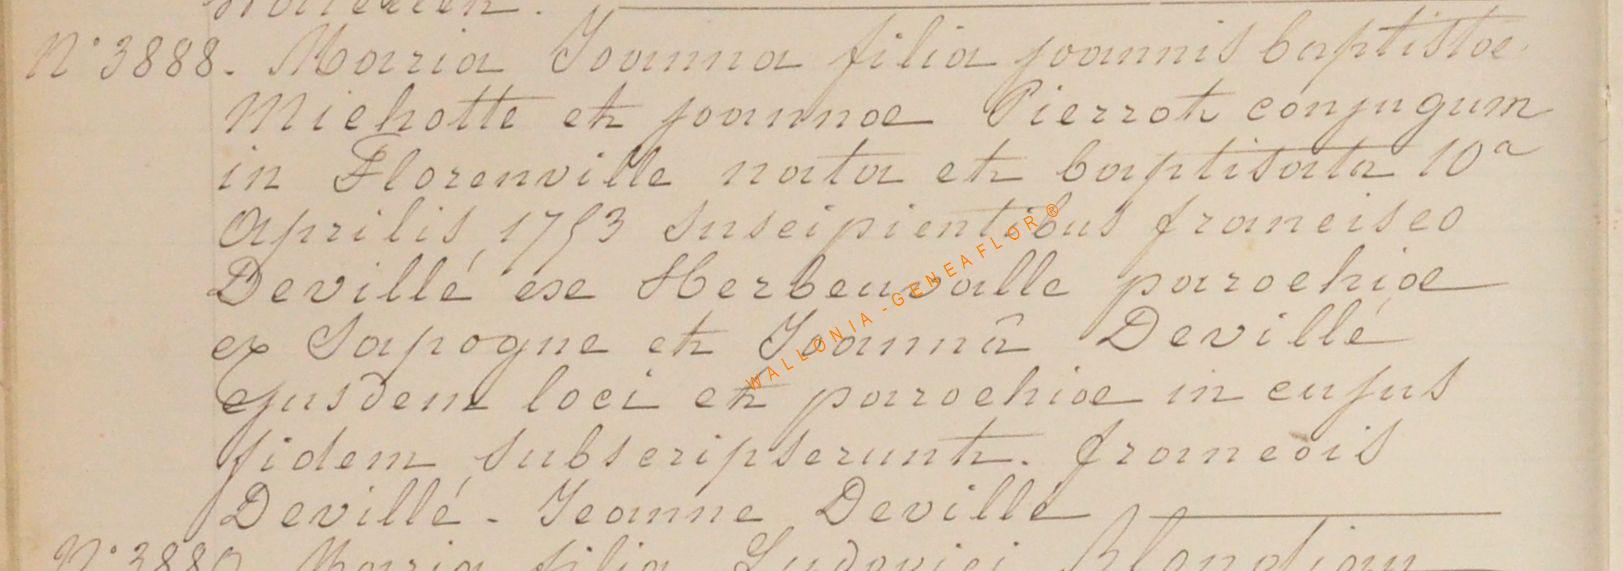 N° 3888. Maria Joanna filia joannis baptistae
Michotte et joannae Pierrot conjugum
in Florenville nata et baptisata 10a
Aprilis 1753 suscipientibus francisco
Devillé ex Herbeuvalle parochiae
ex Sapogne et Joannâ Devillé
ejusdem loci et parochiae in cujus
fidem subscripserunt. francois
Devillé - Jeanne Devillé
N° 3889 Maria filia Ludovici
WALLONIA - GENEAFLOR ®